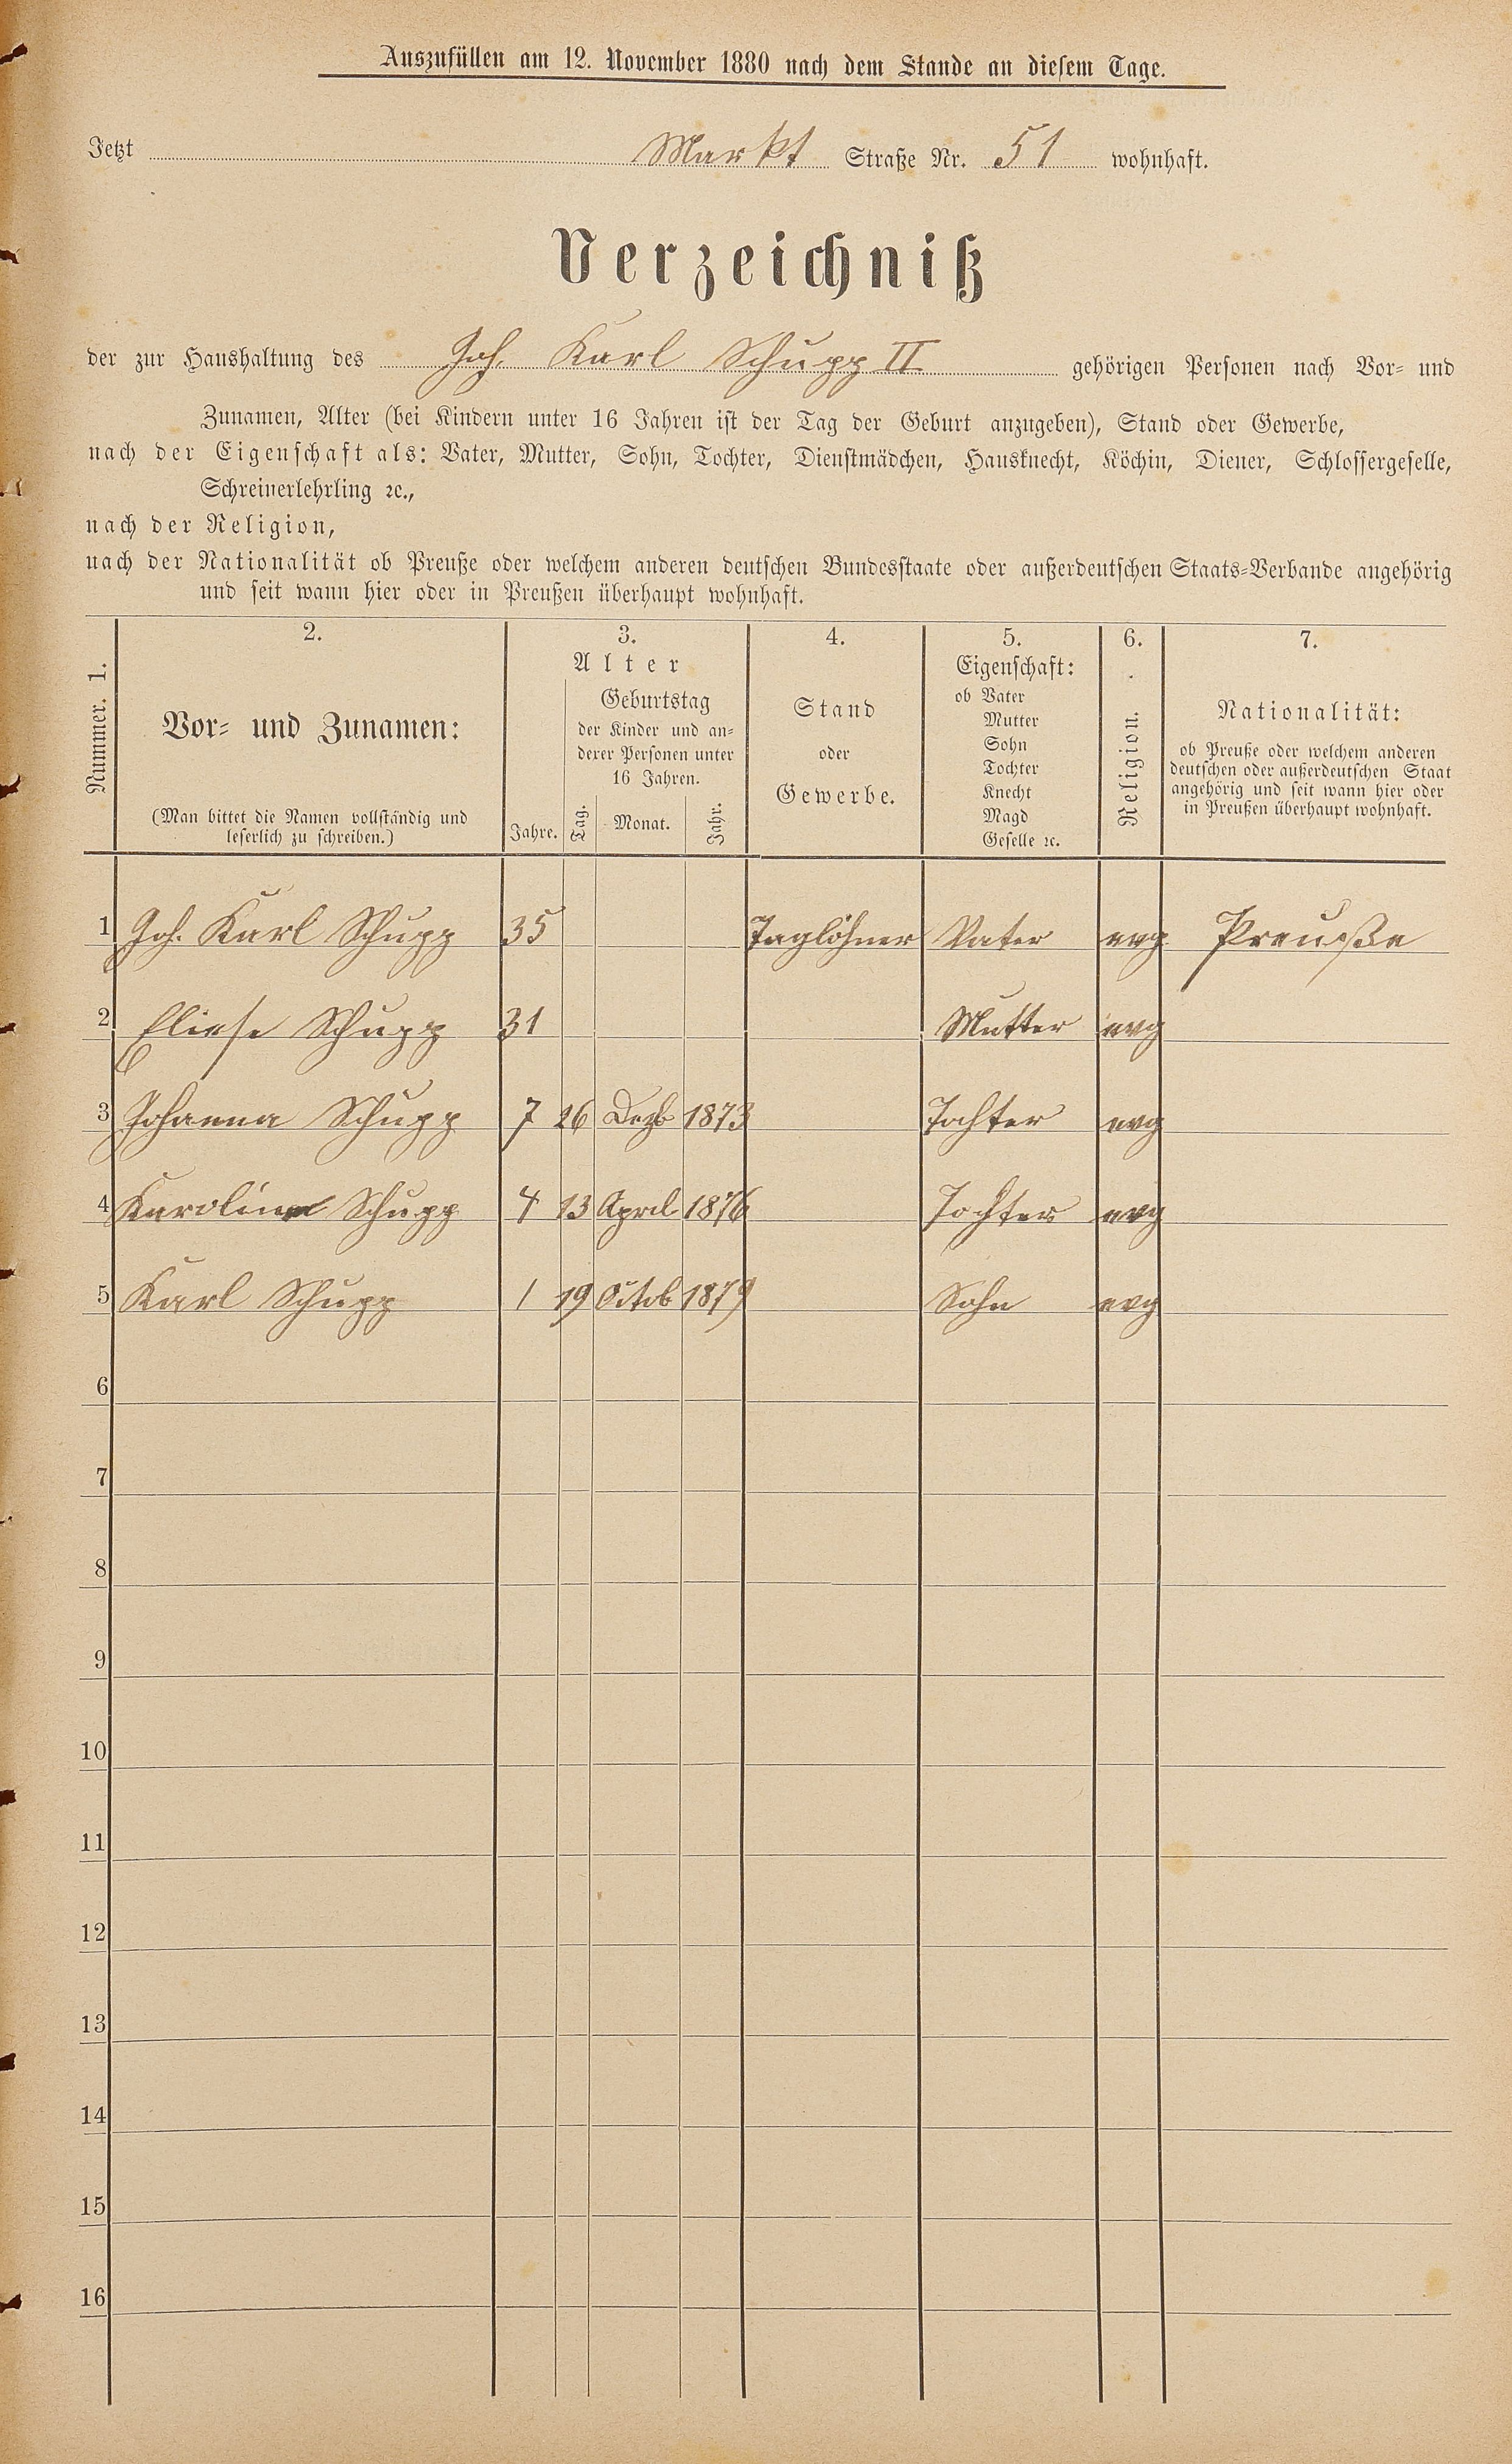 Auszufüllen am 12. November 1880 nach dem Stande an diesem Tage.
Jetzt Markt Straße Nr. 51 wohnhaft.
Verzeichniß
der zur Haushaltung des Joh. Karl Schupp II gehörigen Personen nach Vor- und
Zunamen, Alter (bei Kindern unter 16 Jahren ist der Tag der Geburt anzugeben), Stand oder Gewerbe,
nach der Eigenschaft als: Vater, Mutter, Sohn, Tochter, Dienstmädchen, Hausknecht, Köchin, Diener, Schlossergeselle,
Schreinerlehrling ꝛc.,
nach der Religion,
nach der Nationalität ob Preuße oder welchem anderen deutschen Bundesstaate oder außerdeutschen Staats-Verbande angehörig
und seit wann hier oder in Preußen überhaupt wohnhaft.
Nummer. 1.
2.
Vor- und Zunamen:
(Man bittet die Namen vollständig und
leserlich zu schreiben.)
3.
Alter
Jahre.
Geburtstag
der Kinder und an-
derer Personen unter
16 Jahren.
Tag. Monat. Jahr.
4.
Stand
oder
Gewerbe.
5.
Eigenschaft:
ob Vater
Mutter
Sohn
Tochter
Knecht
Magd
Geselle ꝛc.
6.
Religion.
7.
Nationalität:
ob Preuße oder welchem anderen
deutschen oder außerdeutschen Staat
angehörig und seit wann hier oder
in Preußen überhaupt wohnhaft.
1 Joh. Karl Schupp 35 Taglöhner Vater evg Preuße
2 Eliese Schupp 31 Mutter evg
3 Johanna Schupp 7 26 Dezb 1873 Tochter evg
4 Karoline Schupp 4 13 April 1876 Tochter evg
5 Karl Schupp 1 19 Octob 1879 Sohn evg
6
7
8
9
10
11
12
13
14
15
16